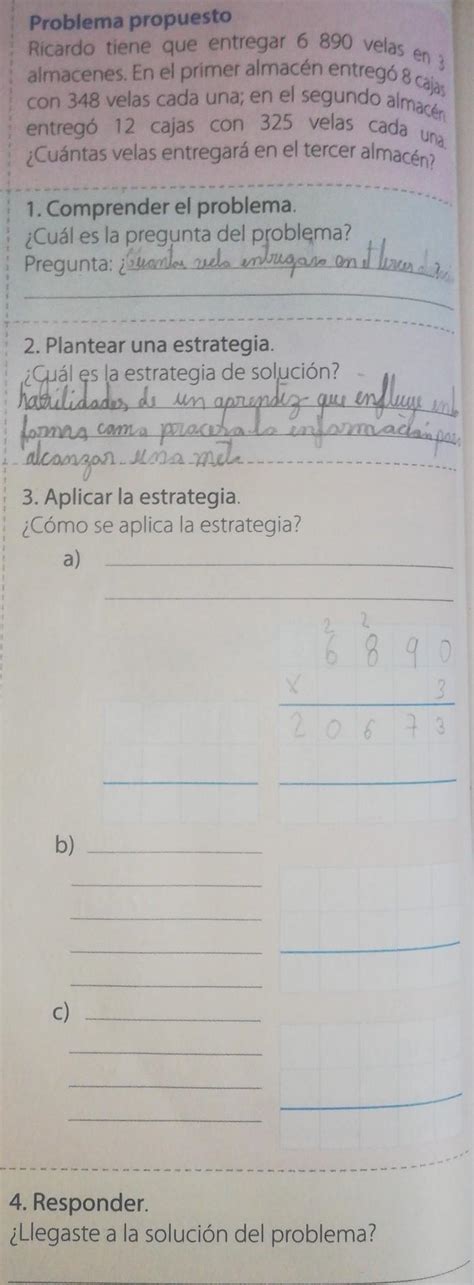 Problema propuesto
Ricardo tiene que entregar 6 890 velas en 3
almacenes. En el primer almacén entregó 8 cajas
con 348 velas cada una; en el segundo almacén
entregó 12 cajas con 325 velas cada una.
¿Cuántas velas entregará en el tercer almacén?
1. Comprender el problema.
¿Cuál es la pregunta del problema?
Pregunta: ¿
2. Plantear una estrategia.
¿Cuál es la estrategia de solución?
habilidades de un aprendiz que enfluye
formas como informacion
alcanzar una meta
3. Aplicar la estrategia.
¿Cómo se aplica la estrategia?
a)
2 2
6 8 9 0
x 3
2 0 6 7 3
b)
c)
4. Responder.
¿Llegaste a la solución del problema?